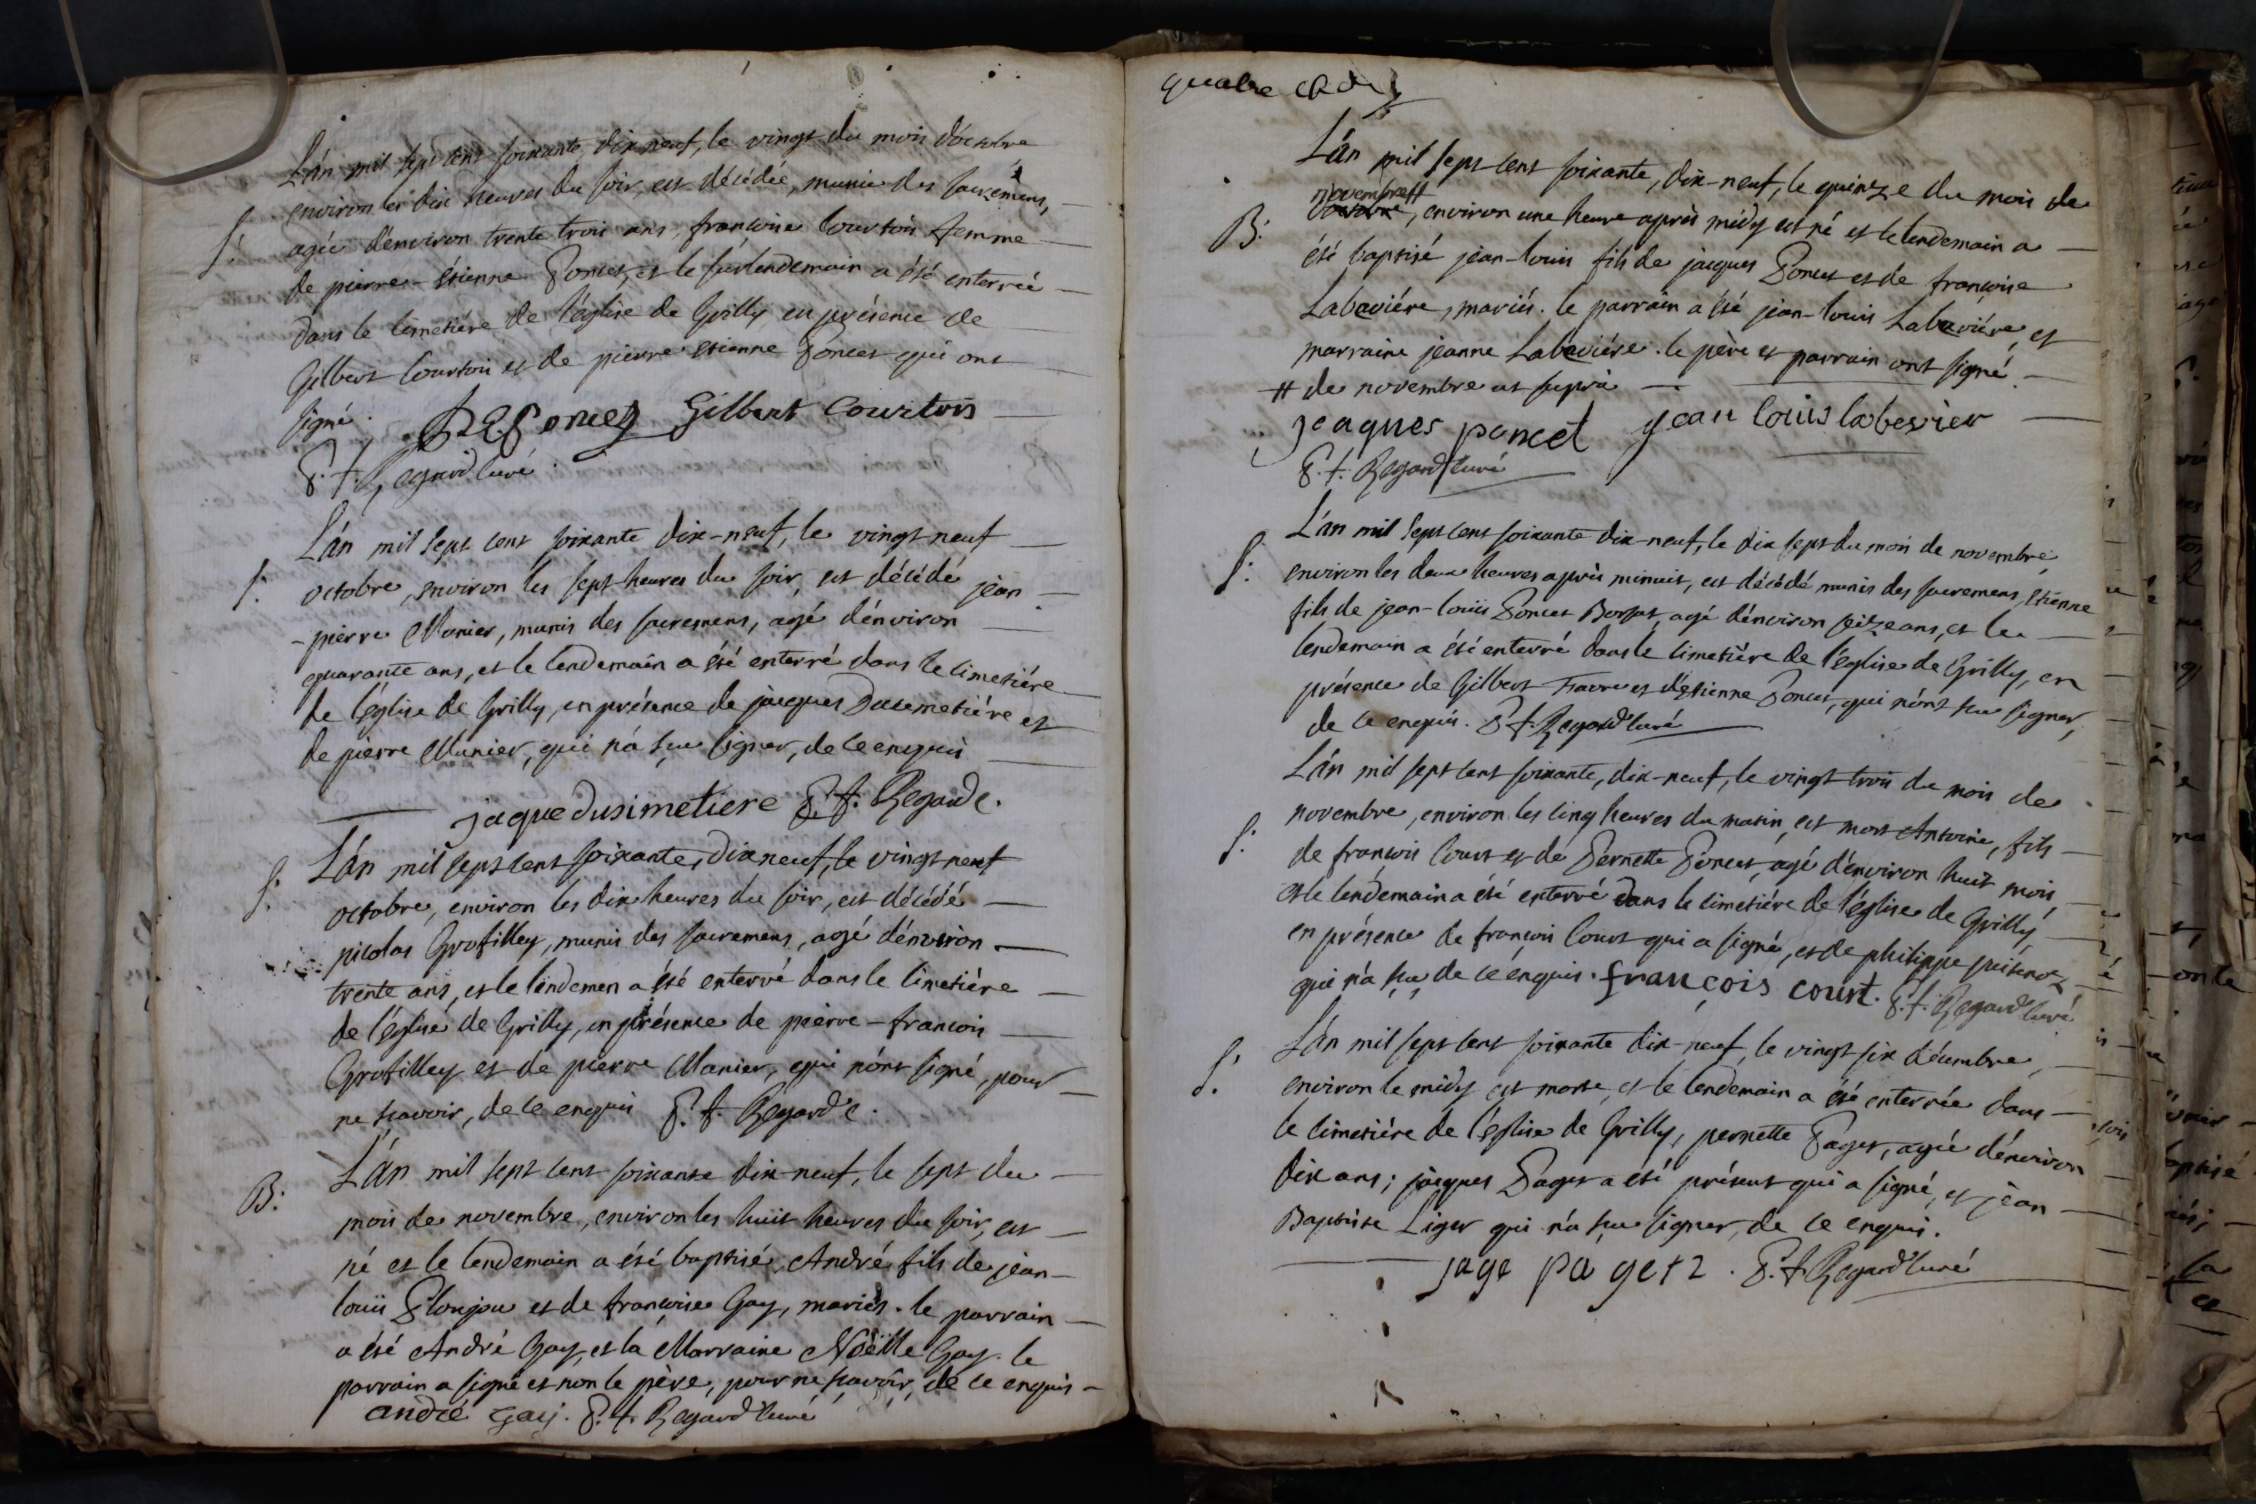 L'án mil sept cent soixante, dix neuf, le vingt du mois d'octobre
environ les dix heures du soir, est décédée, munie des sacremens,
S: agée d'énviron trente trois ans, francoise Courtois femme
de pierre-étienne Poncet, et le surlendemain a été enterrée
dans le cimetiére de l'église de Grilly, en présence de
Gilbert Courtois et de pierre etienne Poncet qui ont
signé. PEPoncet Gilbert Courtois
P. f. Regard curé.
L'án mil sept cent soixante dix-neuf, le vingt neuf
S: octobre, environ les sept heures du soir, est décédé jean
-pierre Munier, munis des sacremens, agé d'énviron
quarante ans, et le lendemain a été enterré dans le cimetiére
de l'église de Grilly, en présence de jacques Ducimetiére et
de pierre Munier, qui n'á sçu signer, de ce enquis
jaque dusimetiere P. f. Regard c.
S: L'án mil sept cent soixante, dix neuf, le vingt neuf
octobre, environ les dix heures du soir, est décédé
nicolas Grofilley, munis des sacremens, agé d'énviron
trente ans, et le lendemen a été enterré dans le cimetiére
de l'église de Grilly, en présence de pierre-francois
Grofilley et de pierre Manier, qui n'ónt signé, pour
ne scavoir, de ce enquis P. f. Regard c.
B: L'án mil sept cent soixante dix neuf, le sept du
mois de novembre, environ les huit heures du soir, est
né et le lendemain a été baptisé, André fils de jean-
louis Plonjon et de francoise Gay, mariés. le parrain
a été André Gay, et la Marraine Noëlle Gay. le
parrain a signé et non le père, pour ne scavoir, de ce enquis
andré gaÿ. P. f. Regard curé
quatre
L'án mil sept cent soixante, dix-neuf, le quinze du mois de
novembre #
B: octobre, environ une heure après midy est né et le lendemain a
été baptisé jean-louis fils de jacques Poncet et de francoise
Labeviére, mariés. le parrain a été jean-louis Labeviére, et
marraine jeanne Labeviére. le père et parrain ont signé.
# de novembre ut suprà
jeaques poncet jean louis labevier
P. f. Regard curé
L'án mil sept cent soixante dix-neuf, le dix sept du mois de novembre
S: environ les deux heures après minuit, est décédé munis des sacremens, étienne
fils de jean-louis Poncet Borsat, agé d'énviron seize ans, et le
lendemain a été enterré dans le cimetière de l'église de Grilly, en
présence de Gilbert Favre et d'étienne Poncet, qui n'ónt sçu signer,
de ce enquis. P. f. Regard curé
L'án mil sept cent soixante, dix-neuf, le vingt trois du mois de
S: novembre, environ les cinq heures du matin, est mort Antoine, fils
de francois Court et de Pernette Poncet, agé d'énviron huit mois
et le lendemain a été enterré dans le cimetiére de l'église de Grilly,
en présence de francois Court qui a signé, et de philippe
qui n'a sçu de ce enquis. françois court. P. f. Regard curé
S. L'án mil sept cent soixante dix-neuf, le vingt six décembre,
environ le midy est morte, et le lendemain a été enterrée dans
le cimetiére de l'église de Grilly, pernette Paget, agée d'énviron
dix ans; jacques Paget a été présent qui a signé, et jean
Baptiste Liger qui n'a sçu signer, de ce enquis.
jage pagetz. P. f. Regard curé